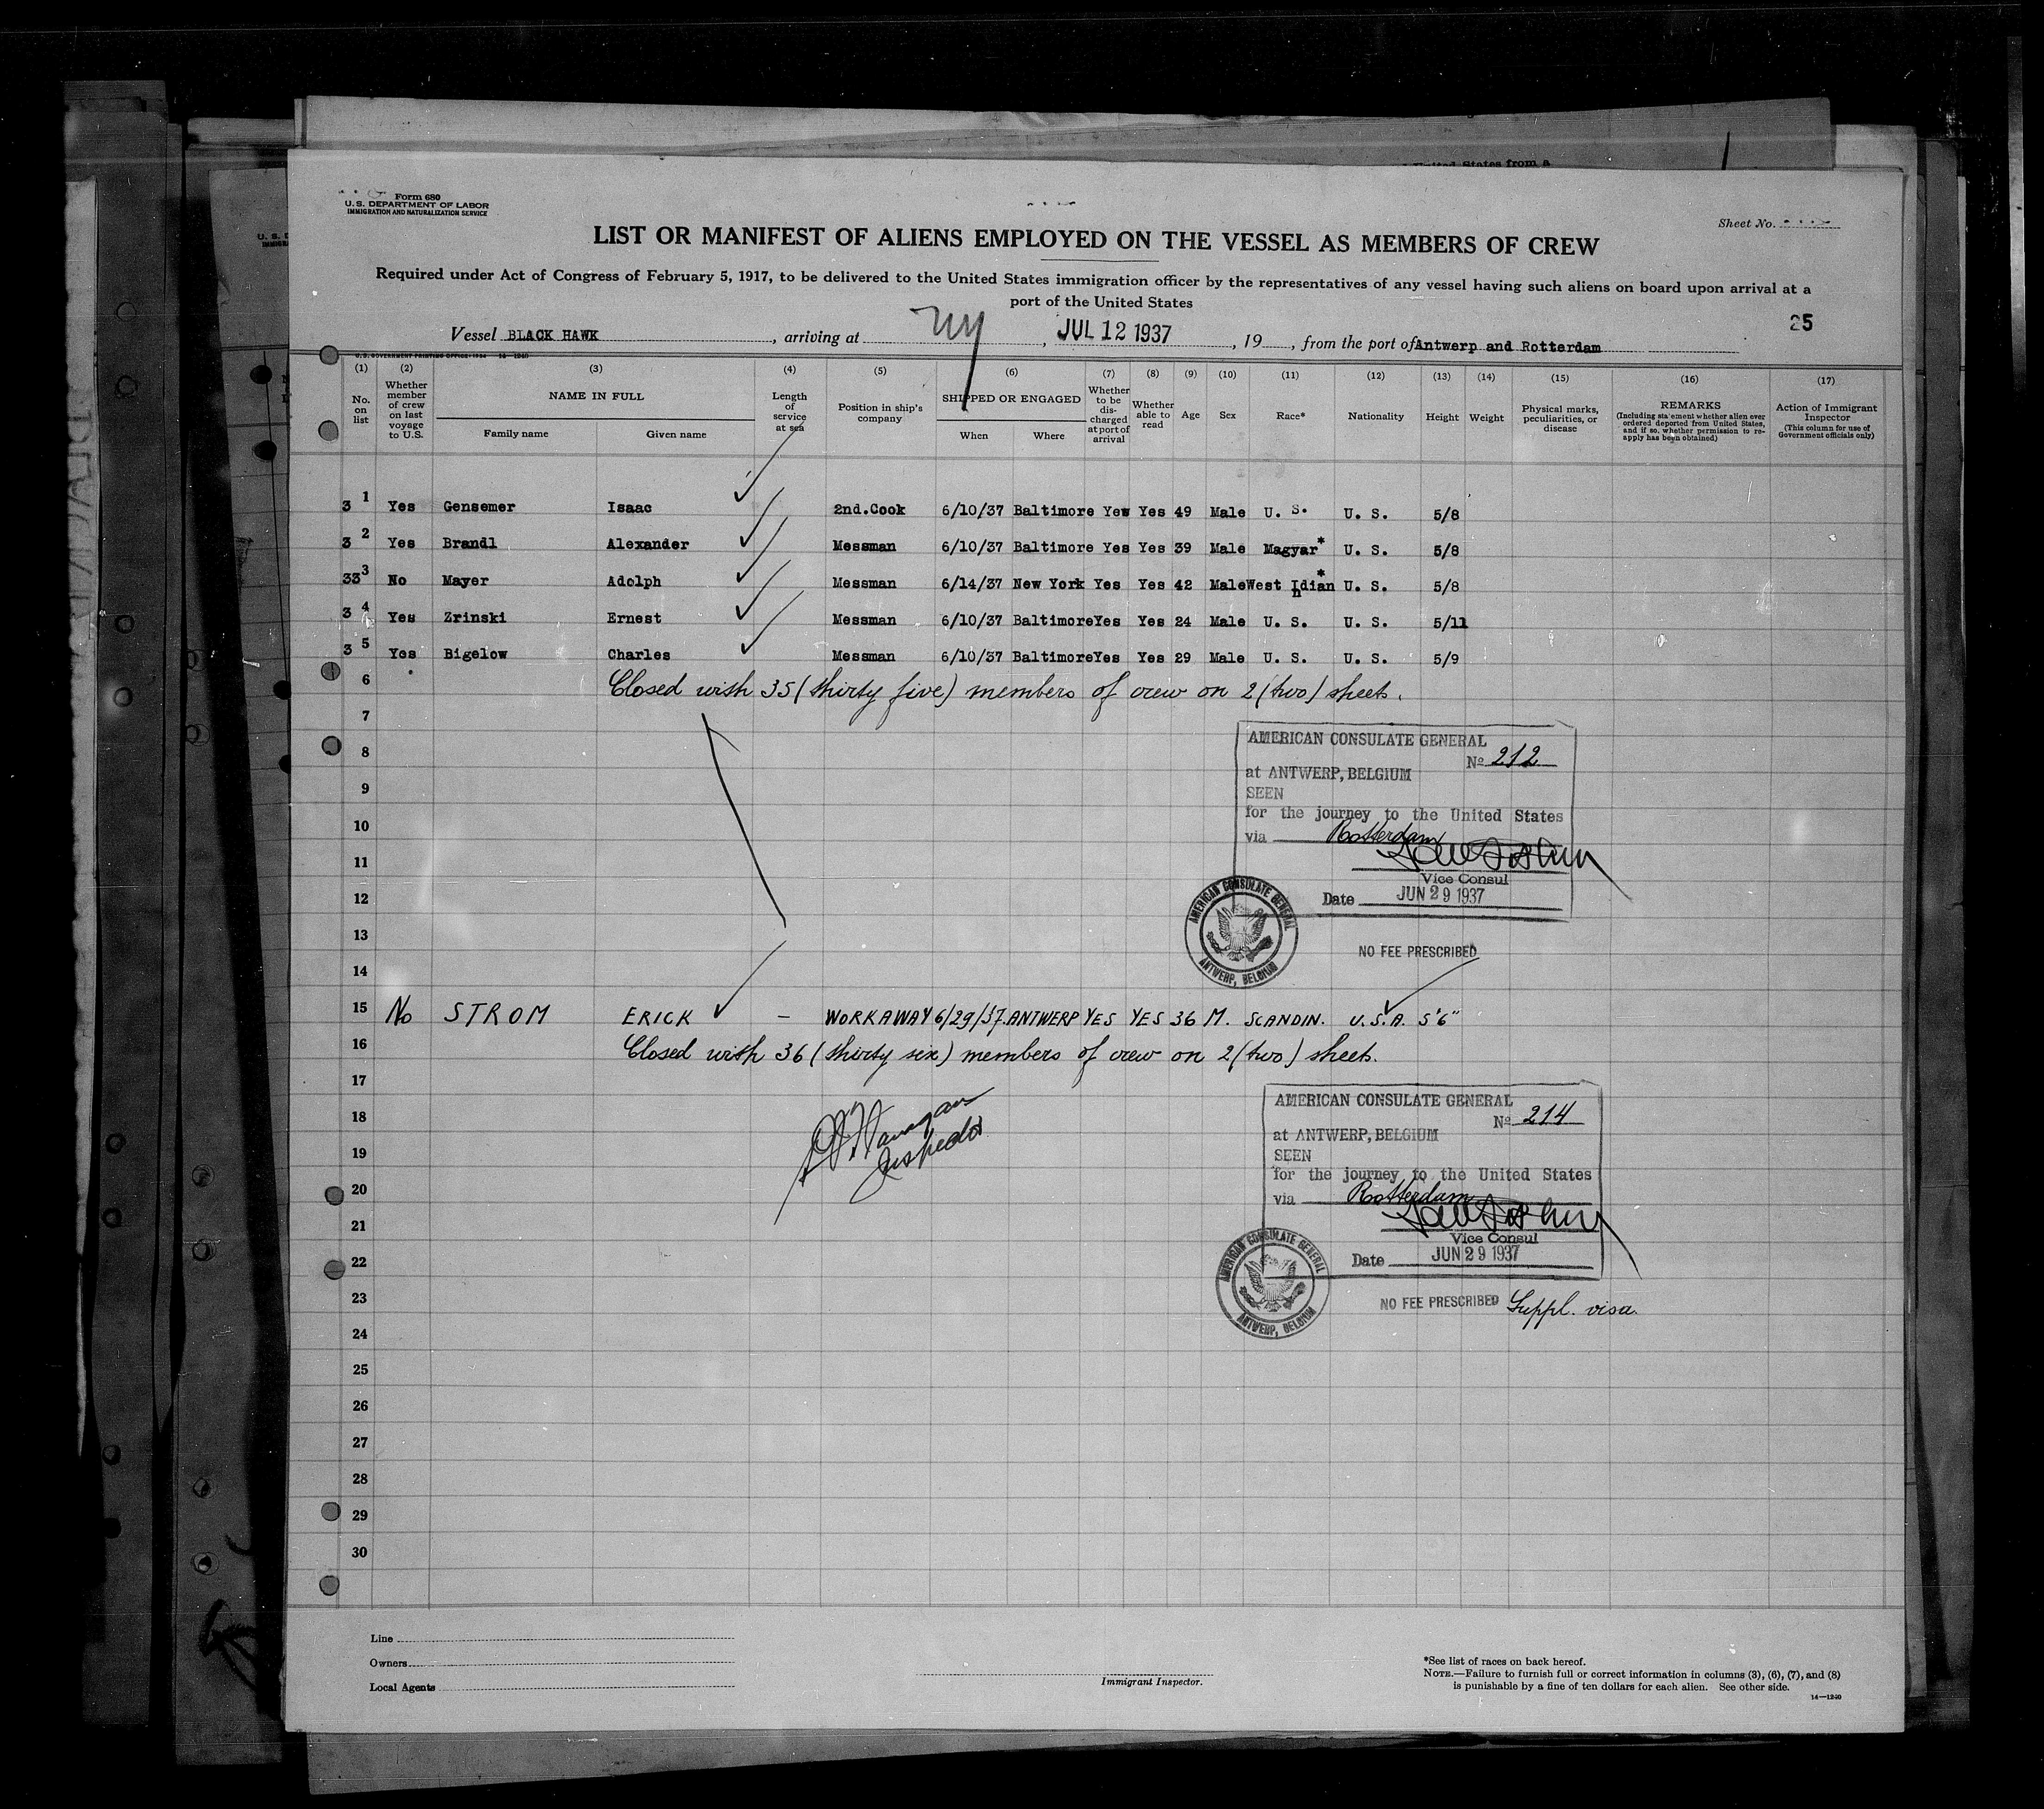 United States from a
Form 680
U. S. DEPARTMENT OF LABOR
IMMIGRATION AND NATURALIZATION SERVICE
Sheet No.
LIST OR MANIFEST OF ALIENS EMPLOYED ON THE VESSEL AS MEMBERS OF CREW
Required under Act of Congress of February 5, 1917, to be delivered to the United States immigration officer by the representatives of any vessel having such aliens on board upon arrival at a
port of the United States
25
Vessel BLACK HAWK, arriving at NY, JUL 12 1937, 19, from the port of Antwerp and Rotterdam
U. S. GOVERNMENT PRINTING OFFICE: 1934 14-1240
(1) (2) (3) (4) (5) (6) (7) (8) (9) (10) (11) (12) (13) (14) (15) (16) (17)
No. on list
Whether member of crew on last voyage to U.S.
NAME IN FULL
Family name Given name
Length of service at sea
Position in ship's company
SHIPPED OR ENGAGED
When Where
Whether to be discharged at port of arrival
Whether able to read
Age
Sex
Race*
Nationality
Height
Weight
Physical marks, peculiarities, or disease
REMARKS
(Including statement whether alien ever ordered deported from United States, and if so, whether permission to reapply has been obtained)
Action of Immigrant Inspector
(This column for use of Government officials only)
3 1 Yes Gensemer Isaac 2nd.Cook 6/10/37 Baltimore Yes Yes 49 Male U. S. U. S. 5/8
3 2 Yes Brandl Alexander Messman 6/10/37 Baltimore Yes Yes 39 Male Magyar* U. S. 5/8
33 3 No Mayer Adolph Messman 6/14/37 New York Yes Yes 42 Male West Indian* U. S. 5/8
3 4 Yes Zrinski Ernest Messman 6/10/37 Baltimore Yes Yes 24 Male U. S. U. S. 5/11
3 5 Yes Bigelow Charles Messman 6/10/37 Baltimore Yes Yes 29 Male U. S. U. S. 5/9
6 Closed with 35 (thirty five) members of crew on 2 (two) sheets.
7
AMERICAN CONSULATE GENERAL
8
No 212
at ANTWERP, BELGIUM
SEEN
9
for the journey to the United States
10
via Rotterdam
11
Vice Consul
12
Date JUN 29 1937
AMERICAN CONSULATE GENERAL
ANTWERP, BELGIUM
13
NO FEE PRESCRIBED
14
15 No STROM ERICK - WORKAWAY 6/29/37. ANTWERP YES YES 36 M. SCANDIN. U.S.A. 5'6"
16 Closed with 36 (thirty six) members of crew on 2 (two) sheets.
17
AMERICAN CONSULATE GENERAL
18
No 214
at ANTWERP, BELGIUM
Inspector
19
SEEN
for the journey to the United States
20
via Rotterdam
21
Vice Consul
22
Date JUN 29 1937
AMERICAN CONSULATE GENERAL
ANTWERP, BELGIUM
23
NO FEE PRESCRIBED Suppl. visa.
24
25
26
27
28
29
30
Line
Owners
Local Agents
Immigrant Inspector.
*See list of races on back hereof.
NOTE.—Failure to furnish full or correct information in columns (3), (6), (7), and (8)
is punishable by a fine of ten dollars for each alien. See other side.
14—1240